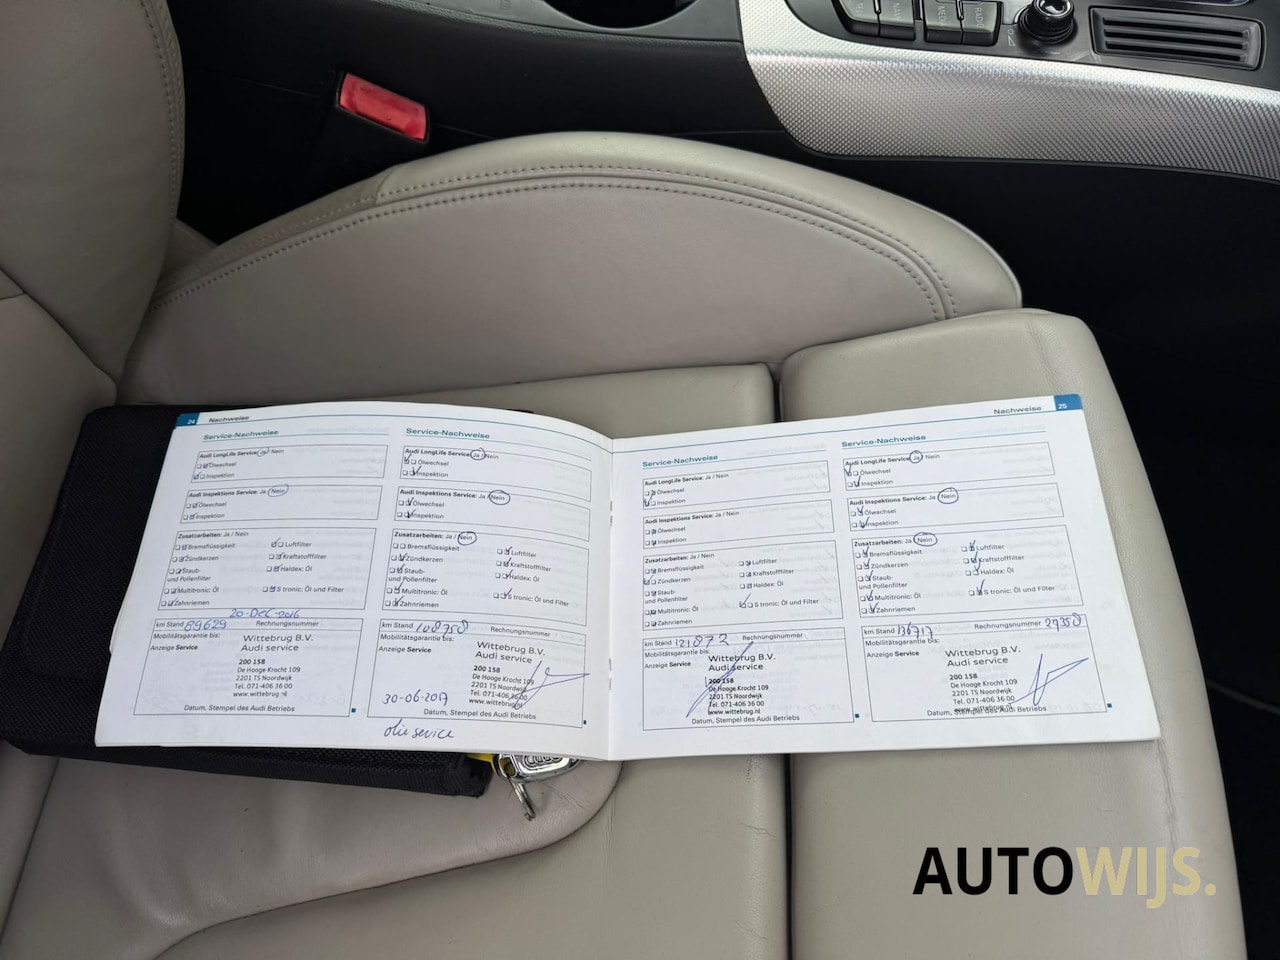 TEL
NAV
MEDIA
RADIO
24 Nachweise
Service-Nachweise
Audi LongLife Service: Ja / Nein
Ölwechsel
Inspektion
Audi Inspektions Service: Ja / Nein
Ölwechsel
Inspektion
Zusatzarbeiten: Ja / Nein
Bremsflüssigkeit
Luftfilter
Zündkerzen
Kraftstofffilter
Staub-
und Pollenfilter
Haldex: Öl
Multitronic: Öl
S tronic: Öl und Filter
Zahnriemen
20-Dec-2016
km Stand 89629 Rechnungsnummer
Mobilitätsgarantie bis:
Anzeige Service
Wittebrug B.V.
Audi service
200 158
De Hooge Krocht 109
2201 TS Noordwijk
Tel. 071-406 36 00
www.wittebrug.nl
Datum, Stempel des Audi Betriebs
Service-Nachweise
Audi LongLife Service: Ja / Nein
Ölwechsel
Inspektion
Audi Inspektions Service: Ja / Nein
Ölwechsel
Inspektion
Zusatzarbeiten: Ja / Nein
Bremsflüssigkeit
Luftfilter
Zündkerzen
Kraftstofffilter
Staub-
und Pollenfilter
Haldex: Öl
Multitronic: Öl
S tronic: Öl und Filter
Zahnriemen
km Stand 108758 Rechnungsnummer
Mobilitätsgarantie bis:
Anzeige Service
Wittebrug B.V.
Audi service
200 158
De Hooge Krocht 109
2201 TS Noordwijk
Tel. 071-406 36 00
www.wittebrug.nl
30-06-2017
Datum, Stempel des Audi Betriebs
olie service
Nachweise 25
Service-Nachweise
Audi LongLife Service: Ja / Nein
Ölwechsel
Inspektion
Audi Inspektions Service: Ja / Nein
Ölwechsel
Inspektion
Zusatzarbeiten: Ja / Nein
Bremsflüssigkeit
Luftfilter
Zündkerzen
Kraftstofffilter
Staub-
und Pollenfilter
Haldex: Öl
Multitronic: Öl
S tronic: Öl und Filter
Zahnriemen
km Stand 121872 Rechnungsnummer
Mobilitätsgarantie bis:
Anzeige Service
Wittebrug B.V.
Audi service
200 158
De Hooge Krocht 109
2201 TS Noordwijk
Tel. 071-406 36 00
www.wittebrug.nl
Datum, Stempel des Audi Betriebs
Service-Nachweise
Audi LongLife Service: Ja / Nein
Ölwechsel
Inspektion
Audi Inspektions Service: Ja / Nein
Ölwechsel
Inspektion
Zusatzarbeiten: Ja / Nein
Bremsflüssigkeit
Luftfilter
Zündkerzen
Kraftstofffilter
Staub-
und Pollenfilter
Haldex: Öl
Multitronic: Öl
S tronic: Öl und Filter
Zahnriemen
km Stand 136717 Rechnungsnummer 27358
Mobilitätsgarantie bis:
Anzeige Service
Wittebrug B.V.
Audi service
200 158
De Hooge Krocht 109
2201 TS Noordwijk
Tel. 071-406 36 00
www.wittebrug.nl
Datum, Stempel des Audi Betriebs
AUTOWIJS.